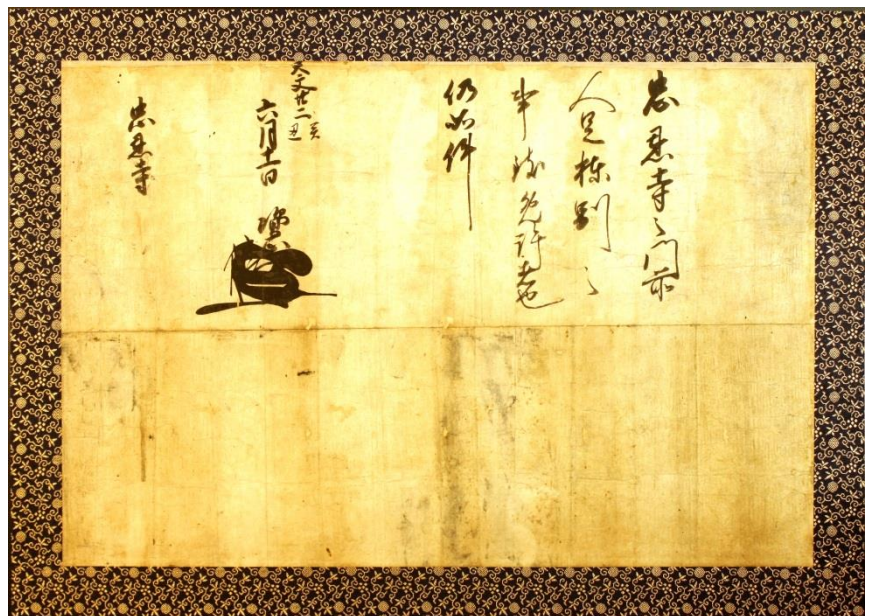 忠恩寺之門前
人足棟別之
事免許者也
仍如件
天文廿二癸丑
六月十一日
忠恩寺